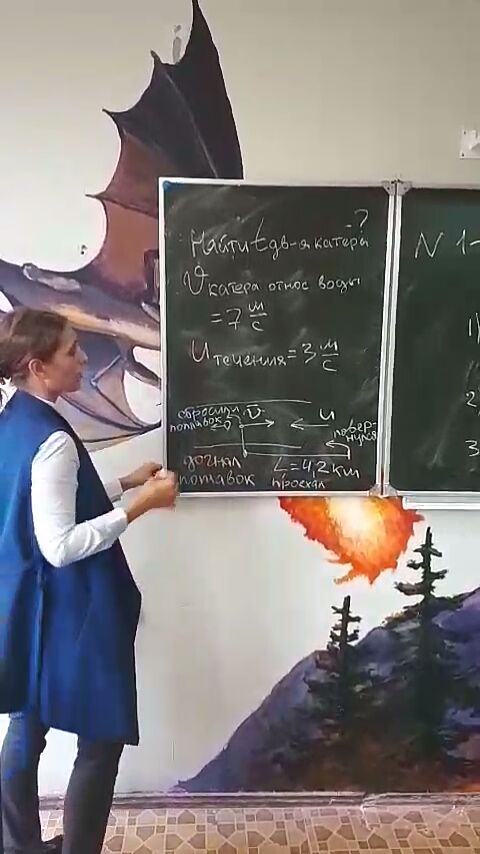 -?
Найти t дв-я катера
V катера относ воды
= 7 м/с
U течения = 3 м/с
сбросили V U
поплавок повер-
нулся
догнал L = 4,2 км
поплавок проехал
N 1-
1)
2
3